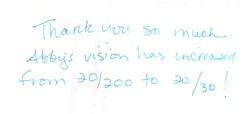 Thank you so much
Abby's vision has increased
from 20/200 to 20/30!